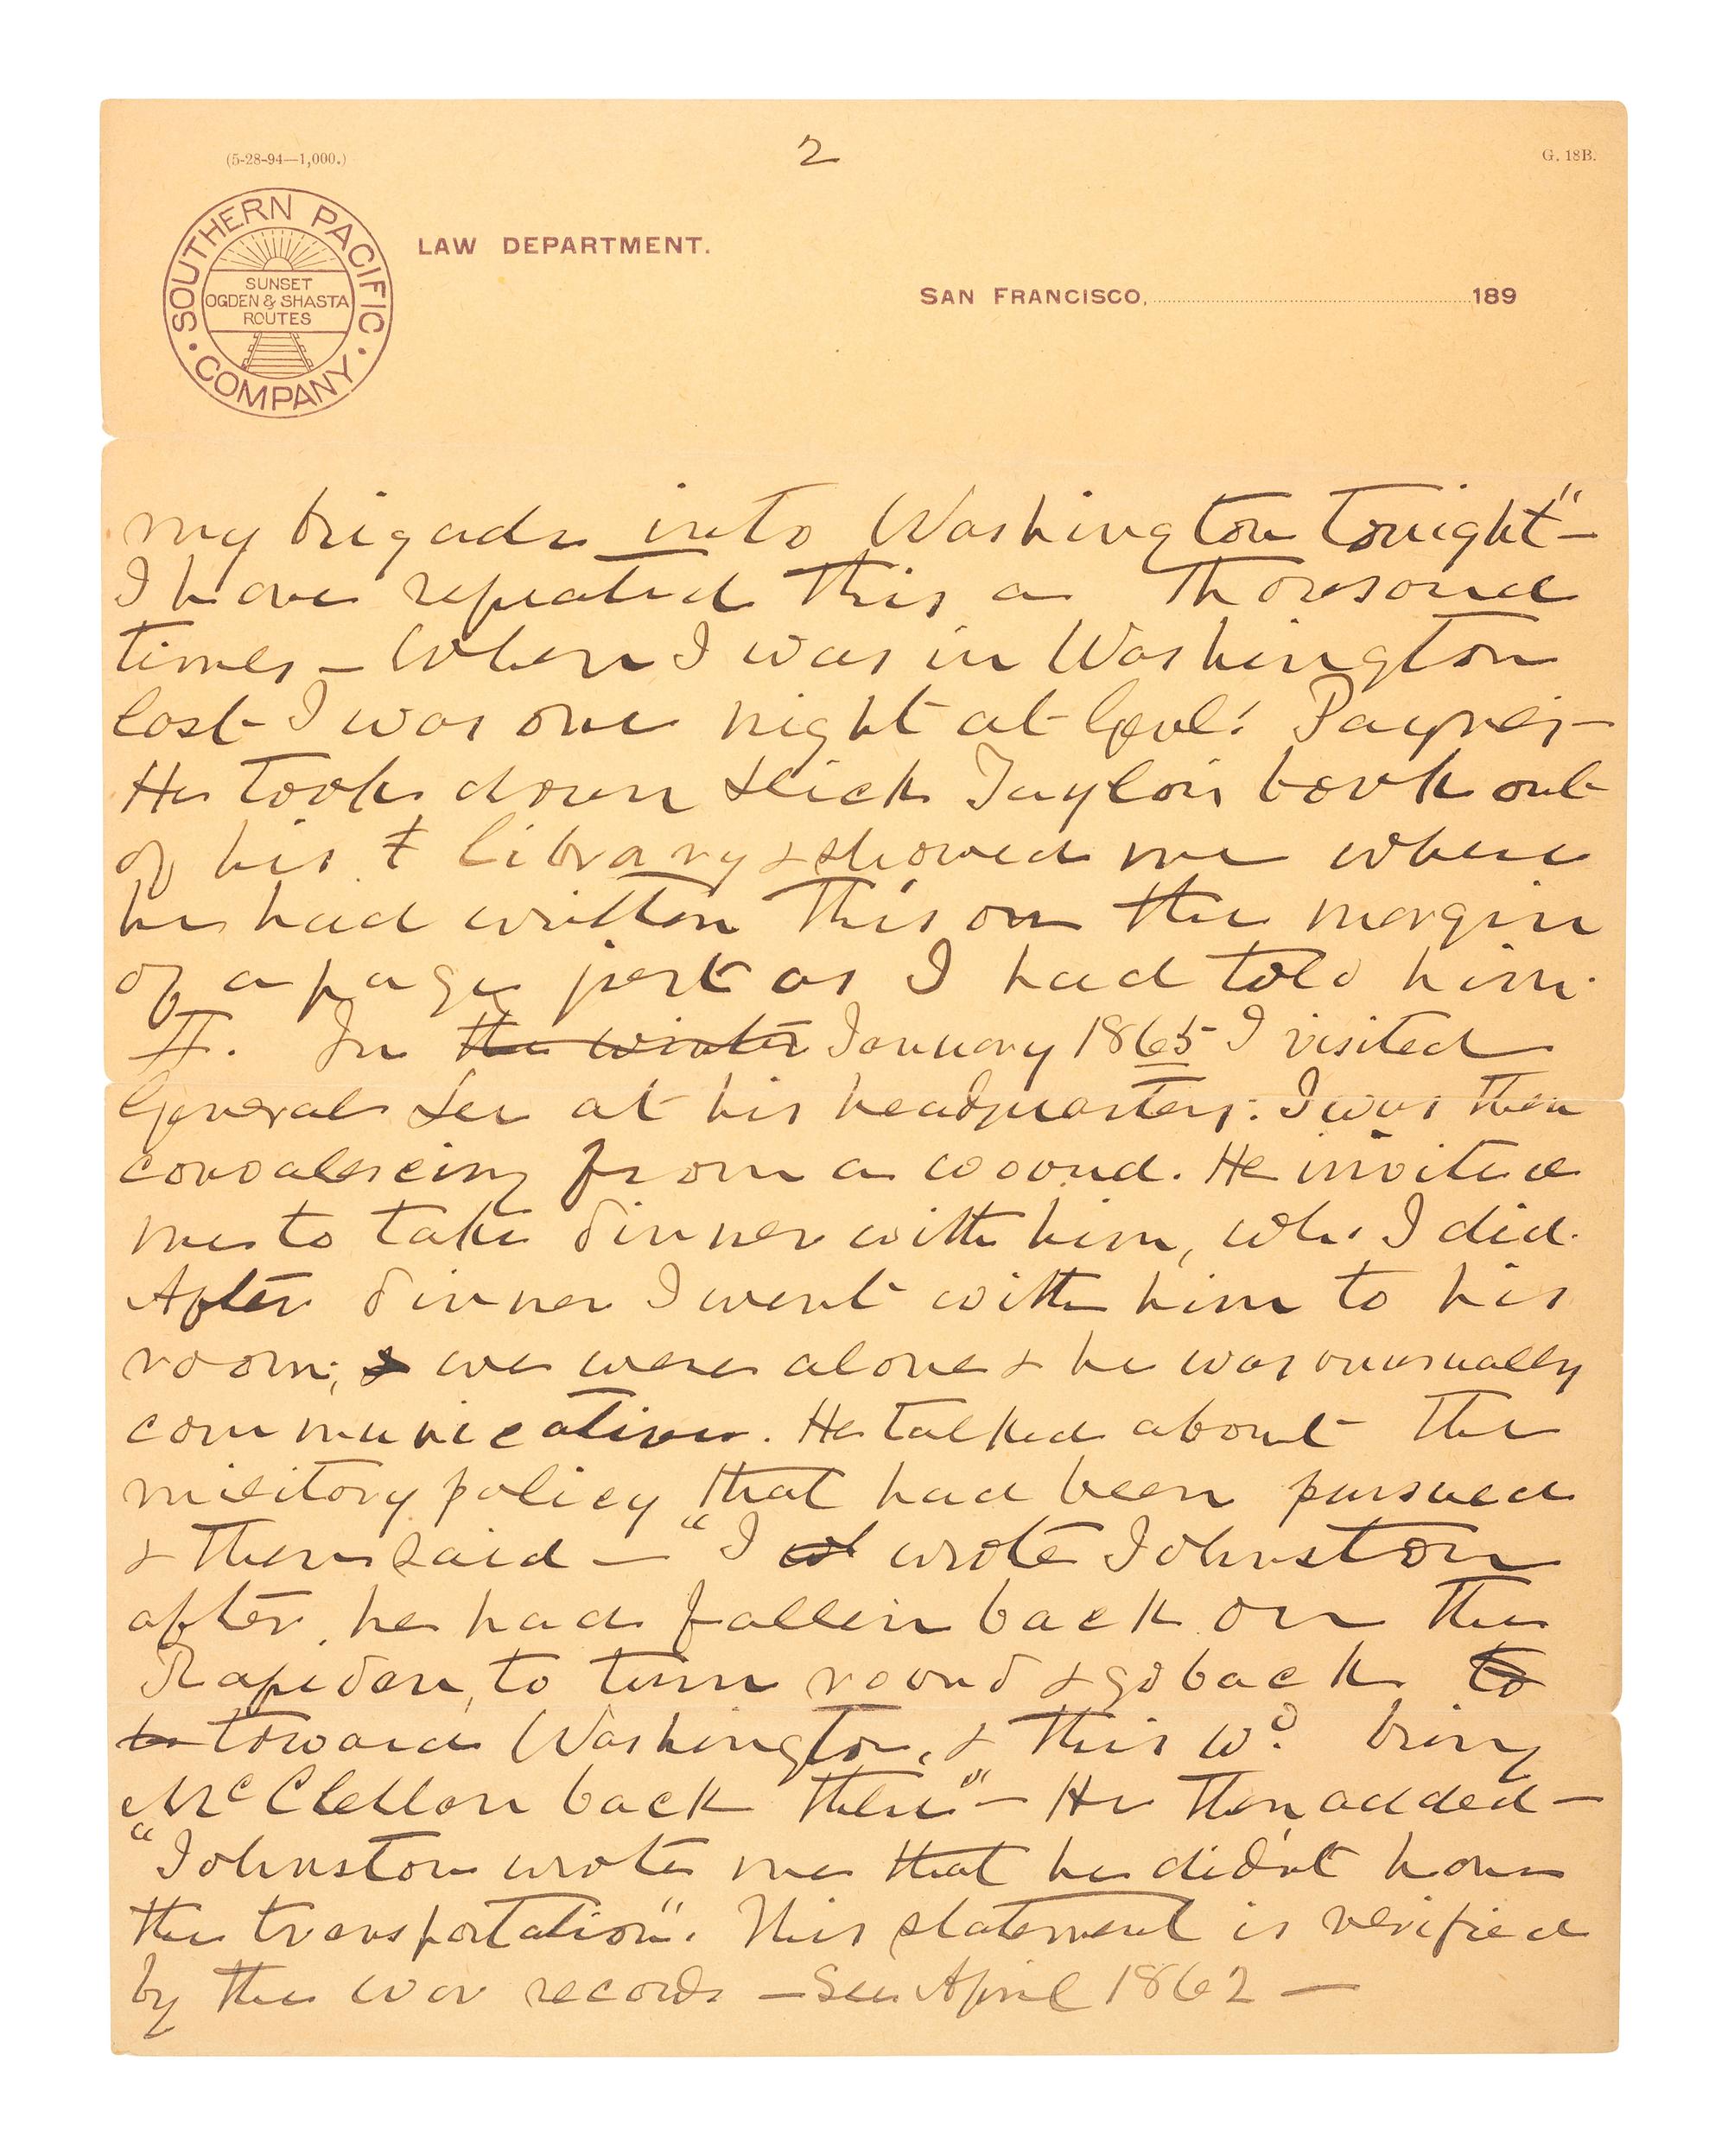 (5-28-94—1,000.)
2
G. 18B.
SOUTHERN PACIFIC COMPANY
SUNSET
OGDEN & SHASTA
ROUTES
LAW DEPARTMENT.
SAN FRANCISCO, 189
my brigade into Washington tonight"—
I have repeated this a thousand
times — When I was in Washington
last I was one night at Genl. Paynes—
He took down Dick Taylors book out
of his library & showed me where
he had written this on the margin
of a page just as I had told him.
II. In the winter January 1865 I visited
General Lee at his headquarters: I was then
convalescing from a wound. He invited
me to take dinner with him, whc. I did.
After dinner I went with him to his
room; & we were alone & he was unusually
communicative. He talked about the
military policy that had been pursued
& then said — "I wrote Johnston
after he had fallen back on the
Rapidan, to turn round & go back to
to toward Washington, & this wd. bring
McClellan back there" — He then added —
"Johnston wrote me that he didn't have
the transportation". This statement is verified
by the war records — See April 1862 —